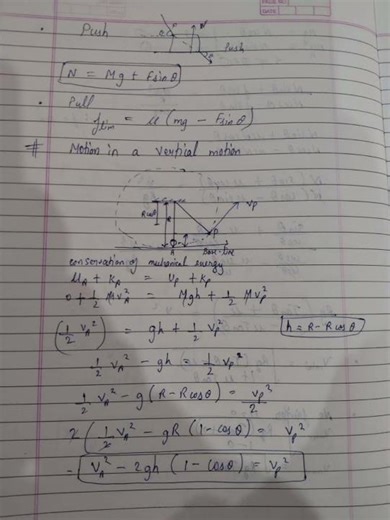 PAGE NO.
DATE
• Push
N
Push
N = Mg + Fsinθ
• Pull
f_lim = μ (mg - Fsinθ)
# Motion in a vertical motion
R cosθ
R
θ
V_P
P
h
A
Base-line
conservation of mechanical energy
U_A + K_A = U_P + K_P
0 + 1/2 M V_A² = Mgh + 1/2 M V_P²
(1/2 V_A²) = gh + 1/2 V_P²
h = R - R cosθ
1/2 V_A² - gh = 1/2 V_P²
1/2 V_A² - g(R - R cosθ) = V_P²/2
2(1/2 V_A² - gR (1 - cosθ) = V_P²
- V_A² - 2gh (1 - cosθ) = V_P²